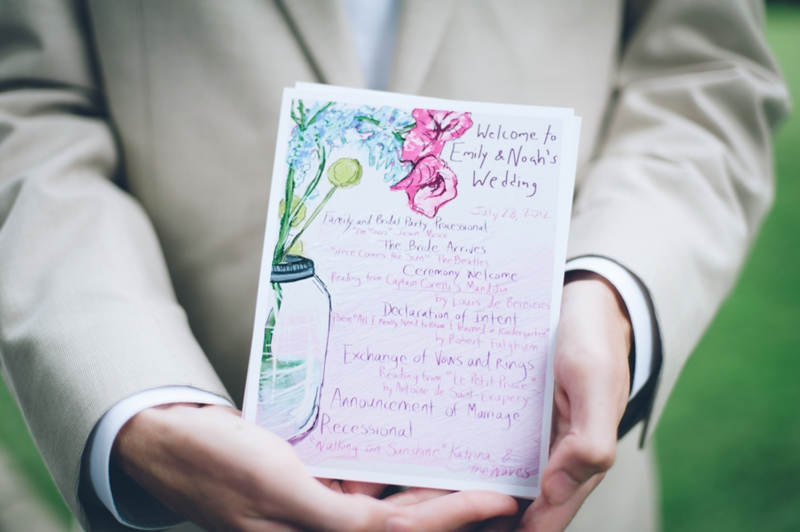 Welcome to
Emily & Noah's
Wedding
July 28, 2012
Family and Bridal Party Processional
"I'm Yours" Jason Mraz
The Bride Arrives
"Here Comes the Sun" The Beatles
Ceremony Welcome
Reading from Captain Corelli's Mandolin
by Louis de Bernieres
Declaration of Intent
Poem "All I Really Need to Know I Learned in Kindergarten"
by Robert Fulghum
Exchange of Vows and Rings
Reading from "Le Petit Prince"
by Antoine de Saint-Exupery
Announcement of Marriage
Recessional
"Walking on Sunshine" Katrina &
the Waves